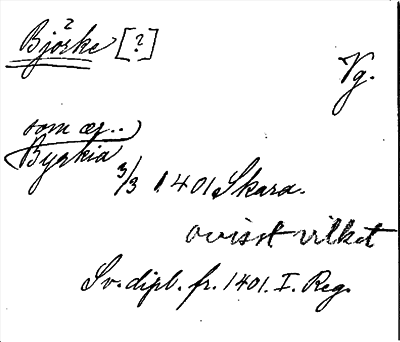 Björke 2 [?]
Vg.
som æg..
Byrkia
3/3 1401 Skara.
ovisst vilket
Sv. dipl. fr. 1401. I. Reg.